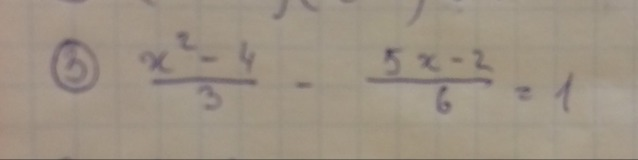 ③ \frac{x^2 - 4}{3} - \frac{5x - 2}{6} = 1